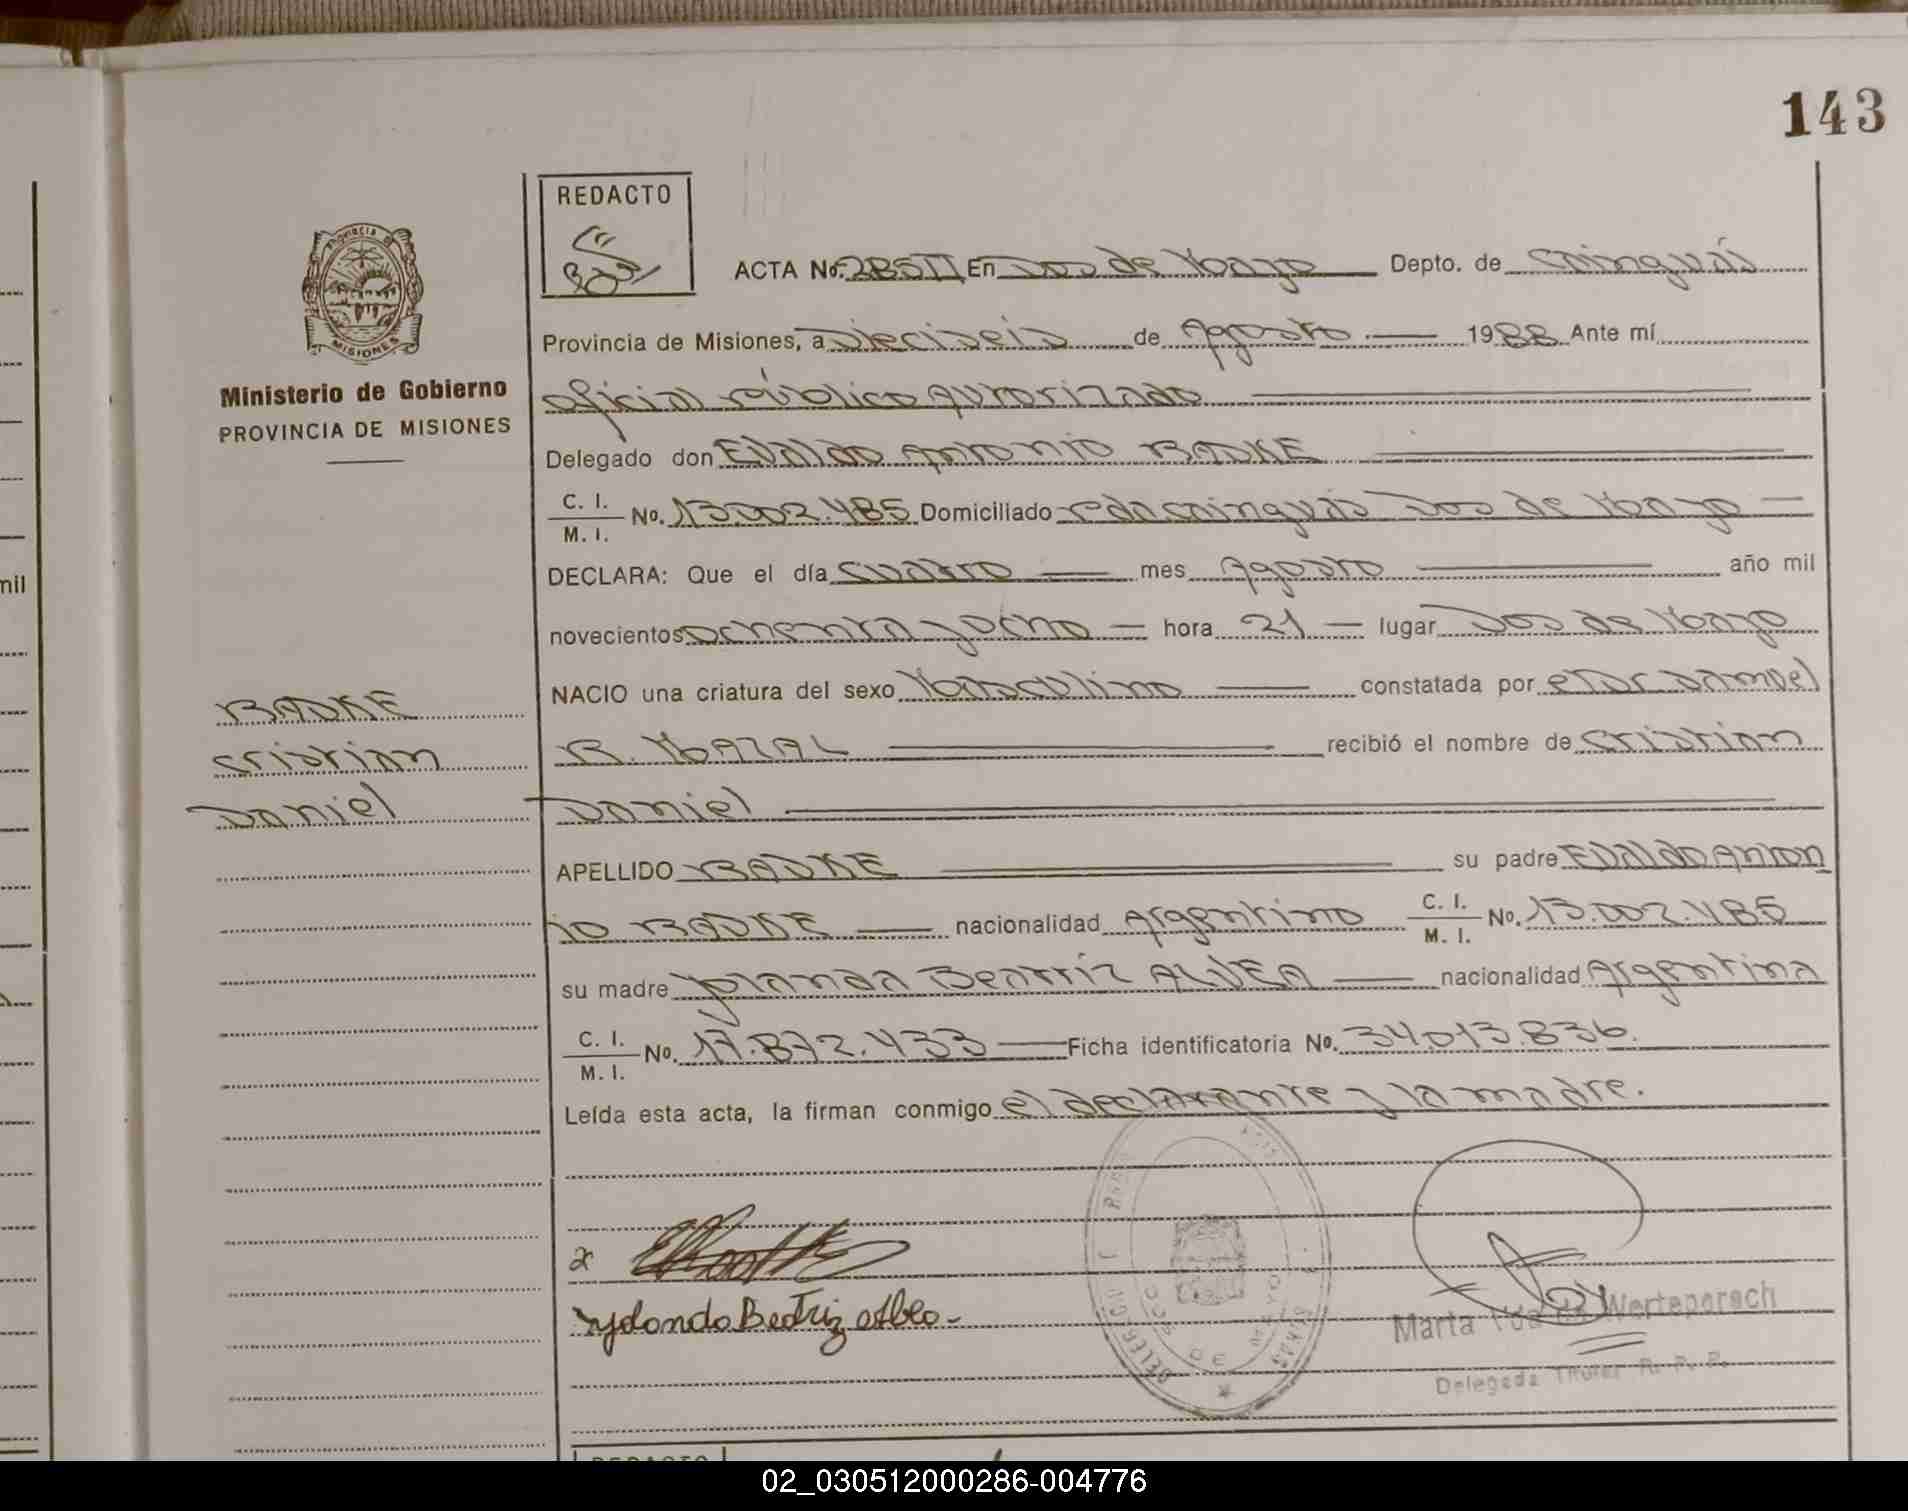 143
REDACTO
ACTA No. 285II En Dos de Mayo Depto. de Cainguás
PROVINCIA DE
MISIONES
Provincia de Misiones, a Dieciseis de Agosto 1988 Ante mí
Ministerio de Gobierno
PROVINCIA DE MISIONES
oficial público autorizado
Delegado don Evaldo Antonio BADKE
C. I.
M. I.
No. 13.002.485 Domiciliado Pdacainguás Dos de Mayo
DECLARA: Que el día cuatro mes Agosto año mil
mil
novecientos ochenta y ocho hora 21 lugar Dos de Mayo
NACIO una criatura del sexo Masculino constatada por Samuel
BADKE
Cristian
Daniel
R. MAZAL recibió el nombre de Cristian
Daniel
APELLIDO BADKE su padre Evaldo Anton
io BADKE nacionalidad Argentino C. I.
M. I. No. 13.002.485
su madre Yolanda Beatriz ALVEA nacionalidad Argentina
C. I.
M. I.
No. 17.872.433 Ficha identificatoria No. 34.013.836.
Leída esta acta, la firman conmigo el declarante y la madre.
x
Yolanda Beatriz
Marta Vda de Werteparech
Delegada Titular R. P. P.
REDACTO
02_030512000286-004776